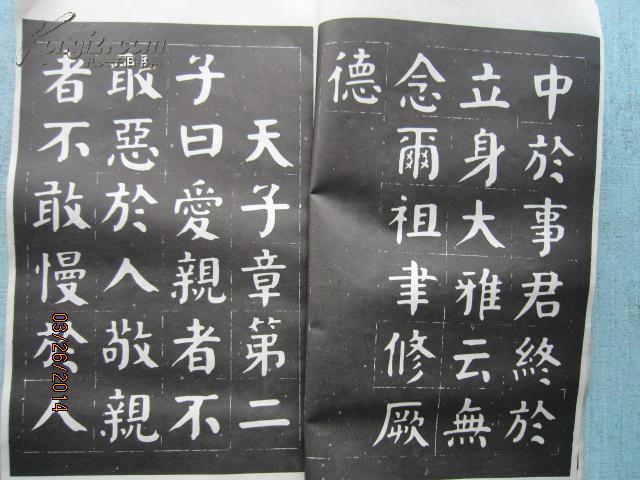 中於事君終於
立身大雅云無
念爾祖聿修厥
德
天子章第二
子曰愛親者不
敢惡於人敬親
者不敢慢於人
03/26/2014